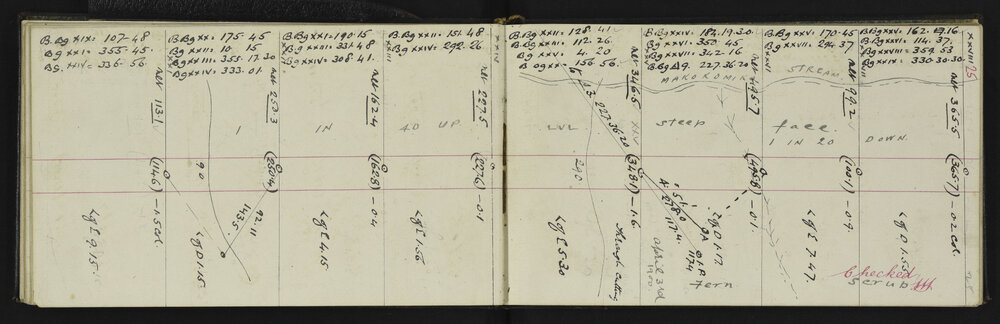 B.Bg XIX= 107-48
Bg XXI= 355-45.
Bg. XXIV= 336-56.
Bg XX= 175-45
Bg XXII= 10 15
Bg XXIII= 355-17.30
Bg XXIV= 333.01
B.Bg XXI= 190.15
Bg XXIII= 331.48
Bg XXIV= 308.41.
B.Bg XXII= 151.48
Bg XXIV= 292.26
XXIV
B.Bg XXIII= 128.41
B.Bg XXII= 112.26
Bg XXV= 4.20
156.56.
B.Bg XXIV= 184.19.20.
Bg XXVI= 350.45
Bg XXVII= 342-16
227.36.20
B.Bg XXV= 170.45
294.37
B.Bg XXVI= 162.19.16
114.37.
Bg XXVIII= 359.53
Bg XXIX= 330.30.30
XXVIII
25
MAKOKOMIKO
STREAM
113.1
250.3
162.4
227.5
346.5
495.7
99.2
365.5
1
IN
40 UP
LVL
steep
face
1 IN 20
DOWN
227.36.20
90
240
(114.6) -1.5 Cd
(250.4)
(162.8) -0.4
(227.6) -0.1
(348.1) -1.6
(495.8) -0.1
(100.1) -0.9
(365.7) -0.2 Cd.
Lg E 9.15
Lg D 1.15
92.11
143.5
Lg E 4.15
Lg E 1.56
Lg E 5.30
Through Cutting
April 3rd
1900
Lg D 1.17
Fern
Lg E 7.47
Lg D 1.53
Checked
Scrub